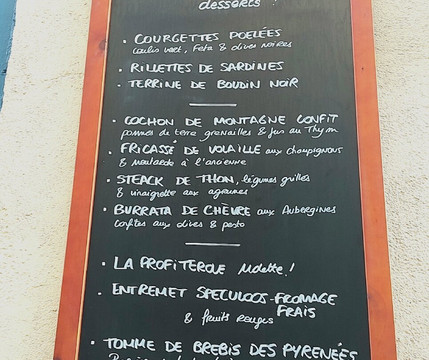 desserts !
• COURGETTES POELÉES
coulis vert, Feta & olives noires
• RILLETTES DE SARDINES
• TERRINE DE BOUDIN NOIR
• COCHON DE MONTAGNE CONFIT
pommes de terre grenailles & jus au Thym
• FRICASSÉ DE VOLAILLE aux champignons
& moutarde à l'ancienne
• STEACK DE THON, légumes grillés
& vinaigrette aux agrumes
• BURRATA DE CHÈVRE aux Aubergines
confites aux olives & pesto
• LA PROFITEROLE Molette !
• ENTREMET SPECULOOS-FROMAGE
FRAIS
& fruits rouges
• TOMME DE BREBIS DES PYRENÉES